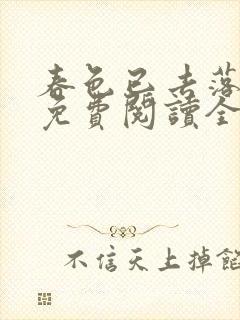 春色已去落
免費閱讀全
不信天上掉餡